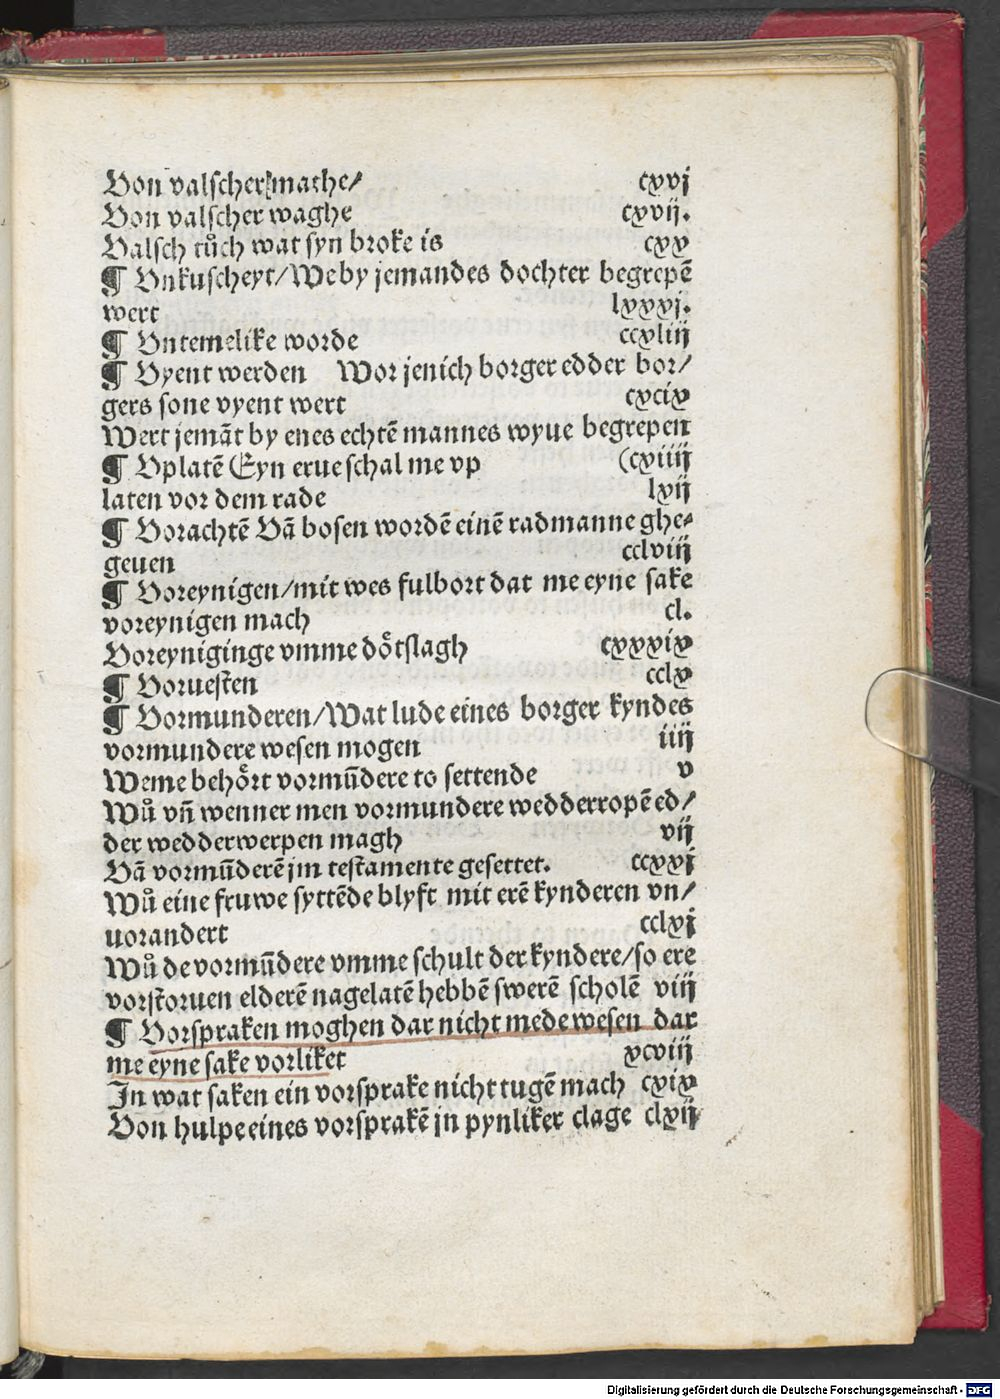 Von valscher mathe/ cxvj
Von valscher waghe cxvij.
Valsch tůch wat syn broke is cxx
¶ Vnkuscheyt/We by jemandes dochter begrepē
wert lxxxj.
¶ Vntemelike worde ccxliij
¶ Vyent werden Wor jenich borger edder bor/
gers sone vyent wert cxcix
Wert jemāt by enes echtē mannes wyue begrepen
¶ Vplatē Eyn erue schal me vp (cxiiij
laten vor dem rade lxij
¶ Vorachtē Vā bosen wordē einē radmanne ghe⸗
geuen cclviij
¶ Voreynigen/mit wes fulbort dat me eyne sake
voreynigen mach cl.
Voreyniginge vmme dôtslagh cxxxix
¶ Voruesten cclx
¶ Vormunderen/Wat lude eines borger kyndes
vormundere wesen mogen iiij
Weme behôrt vormūdere to settende v
Wů vñ wenner men vormundere wedderropē ed/
der wedderwerpen magh vij
Vā vormūderē jm testamente gesettet. ccxxj
Wů eine fruwe syttēde blyft mit erē kynderen vn/
uorandert cclxj
Wů de vormūdere vmme schult der kyndere/so ere
vorstoruen elderē nagelatē hebbē swerē scholē viij
¶ Vorspraken moghen dar nicht mede wesen dar
me eyne sake vorliket xcviij
In wat saken ein vorsprake nicht tugē mach cxix
Von hulpe eines vorsprakē jn pynliker clage clxij
Digitalisierung gefördert durch die Deutsche Forschungsgemeinschaft - DFG